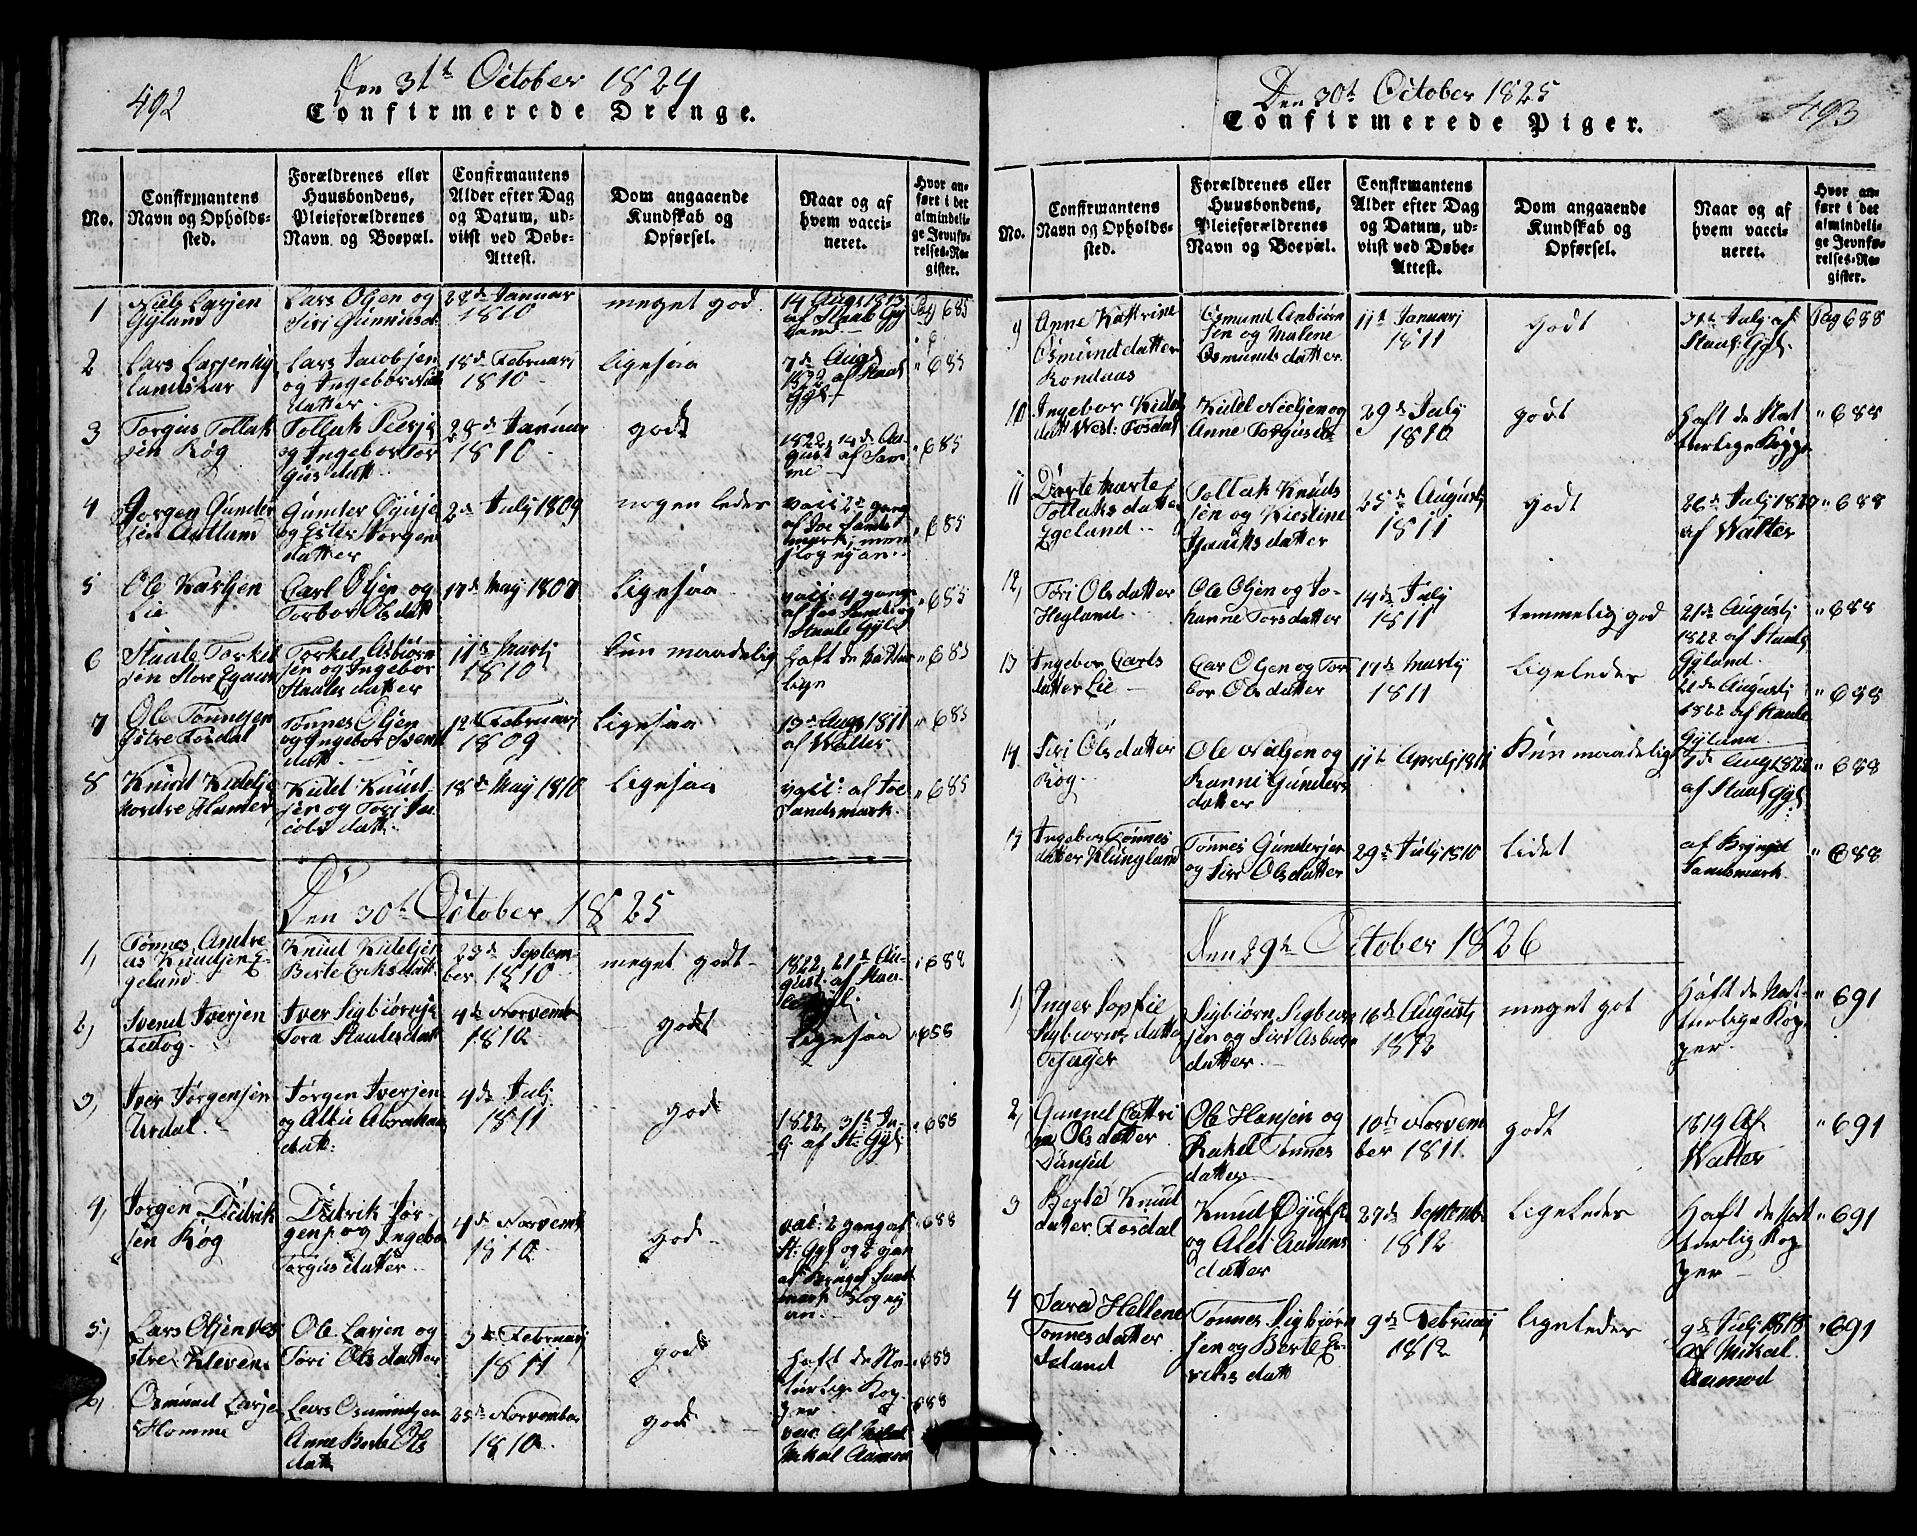 492
Den 31th October 1824
Confirmerede Drenge.
No.
Confirmantens
Navn og Opholds-
sted.
Forældrenes eller
Huusbondens,
Pleieforældrenes
Navn og Boepæl.
Confirmantens
Alder efter Dag
og Datum, ud-
viist ved Døbe-
Attest.
Dom angaaende
Kundskab og
Opførsel.
Naar og af
hvem vacci-
neret.
Hvor an-
ført i det
almindeli-
ge Jevnfø-
relses-Re-
gister.
1
Niels Larsen
Gyland
Lars Olsen og
Siri Gunnusd.
28de Januar
1810
meget god
14 Augs 1813
af Staale Gy
land
Pag 685
2
Lars Larsen
Lars Jacobsen
og Ingebor
datter
18de Februari
1810
ligesaa
7de Augs
1822 af Staal
Gyl
" 685
3
Torgus Tollak
sen Røg
Tollak Peers
og Ingebor Tor
gus datt
28de Januar
1810
godt
1822, 14de Au-
gust af Sam
me
" 685
4
Jørgen Gunder
sen Aatland
Gunder
og Ester Jørgens
datter
2de July 1809
nogenledes
vacc: 2de gang
af Joe Sands
mark, men
slog ej an
" 685
5
Ole Karlsen
Lie
Carl Olsen og
Torbor Olsdatt
17de May 1807
ligesaa
vacc: 4 gange
af Joe Sandsm og
Staale Gyl
" 685
6
Staale Torkel
sen Store Egeland
Torkel Asbiørn
sen og Ingebor
Staalesdatter
11te Martj
1810
kun maadelig
haft de Natur
lige
" 685
7
Ole Tønnesen
Østre Fosdal
Tønnes Olsen
og Ingebor Svend
datt
12te Februarj
1809
ligesaa
19de Augs 1811
af Walter
" 685
8
Knud Kidelse
nordre Hamer
Kidel Knud-
sen og Tori Ja
cobsdatt
18de May 1810
ligesaa
vacc: af Joe
Sandsmark.
" 685
Den 30th October 1825
1,
Tønnes Andre
as Knudsen E-
geland
Knud Kidelsen
Berte Eriksdatt
23de Septem-
ber 1810
meget godt
1822, 21de Au-
gust: af Staa-
le Gyl:
" 688
2,
Svend Iversen
Fedog
Iver Sigbiørns
Tora Staalesdatt
4de Novemb
1810
godt
ligesaa
" 658
3,
Iver Jørgensen
Urdal
Jørgen Iversen
og Alku Abraham
datt:
4de July
1811
godt
1822, 31te Ju-
ly af St: Gyl:
" 688
4,
Jørgen Didrik
sen Røg
Didrik Jør-
gens og Ingebor
Torgusdatter
4de Novemb
1810
godt
vac: 2 gang af
St: Gyl og 2 gan
af Brynel Sand
mark slog ej
an.
" 688
5,
Lars Olsen Ves
tre Kleven
Ole Larsen og
Tori Olsdatter
3de Februarj
1811
godt
haft de Na-
turlige Kop-
per
" 688
6,
Osmund Larsen
Homme
Lars Osmundsen
Anne Berte Ols
datt
25de November
1810
godt
vac. af
Mikal Aamod
688
493
Den 30th October 1825
Confirmerede Piger.
No.
Confirmantens
Navn og Opholds-
sted.
Forældrenes eller
Huusbondens,
Pleieforældrenes
Navn og Boepæl.
Confirmantens
Alder efter Dag
og Datum, ud-
viist ved Døbe-
Attest.
Dom angaaende
Kundskab og
Opførsel.
Naar og af
hvem vacci-
neret.
Hvor an-
ført i det
almindeli-
ge Jevnfø-
relses-Re-
gister.
9
Anne Kattrine
Osmundsdatter
Rondaas
Osmund Asbiørn
sen og Malene
Osmundsdatter.
11te Januarj
1811
Godt
31te July af
Staal: Gyl.
Pag 688
10
Ingebor Kidel
datt West: Fosdal
Kidel Nielsen og
Anne Torgusda
29de July
1810
godt
Haft de Nat
turlige Koppe
" 688
11
Dorte Marte
Tollaksdatter
Egeland
Tollak Knuds
sen og Kiestine
Isaaksdatter
25de Augustj
1811
godt
26de July 1819
af Walter
" 688
12,
Tori Olsdatter
Heyland
Ole Olsen og Jo-
hanne Torsdatter
14de July
1811
temmelig god
21de Augustj
1822 af Staale
Gyland.
" 688
13
Ingebor Carls
datter Lie
Car Olsen og Tor
bor Olsdatter
17de Martj
1811
ligeledes
21de Augustj
1822 af Staale
Gyland
" 688
14
Siri Olsdatter
Røg
Ole Nielsen og
Ranne Gunders
datter
11te Aprilj 1811
kun maadelig
7de Aug 1822
af Staal Gyl:
" 688
15
Ingebor Tønnes
datter Klungland
Tønnes Gundersen
og Siri Olsdatter
29de July 1810
lidet
af Brynel
Sandsmark.
" 688
Den 29th October 1826
1,
Inger Sopfie
Sigbiørnsdatter
Sigbiørn Sigbiørn
sen og Siri Asbiørn
datter.
16de Augustj
1812
meget got
Haft de Nat-
turlige Kop-
per.
" 691
2,
Gunnel Cattri
ne Olsdatter
Dunsed
Ole Hansen og
Rakel Tønnes
datter
10de Novem
ber 1811.
godt
1819 Af
Walter
" 691
3
Berte Knud
datter Fosdal
Knud
og Alet Aanens
datter
27de Septemb
1812
ligeledes
Haft de Nat
turlig Kop
per
" 691
4
Sara Hellene
Tønnesdatter
Iseland
Tønnes Sigbiørn
sen og Berte E-
reksdatt
9de Februarj
1812
ligeledes
9de July 1818
af Mikal
Aamod
" 691